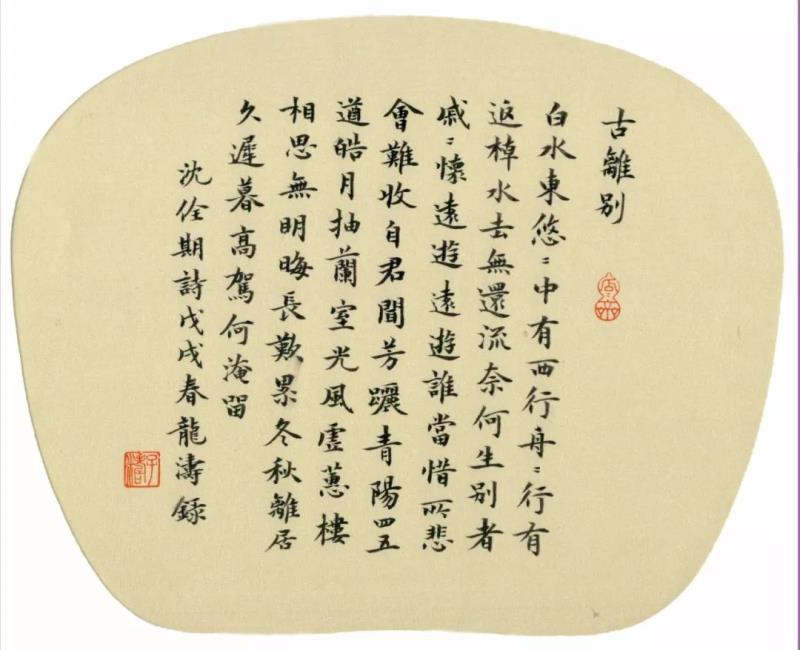 古離別
白水東悠〻中有西行舟〻行有
返棹水去無還流奈何生別者
戚〻懷遠遊遠遊誰當惜所悲
會難收自君間芳躧青陽四五
遒皓月掩蘭室光風虛蕙樓
相思無明晦長歎累冬秋離居
久遲暮高駕何淹留
沈佺期詩戊戌春龍濤錄